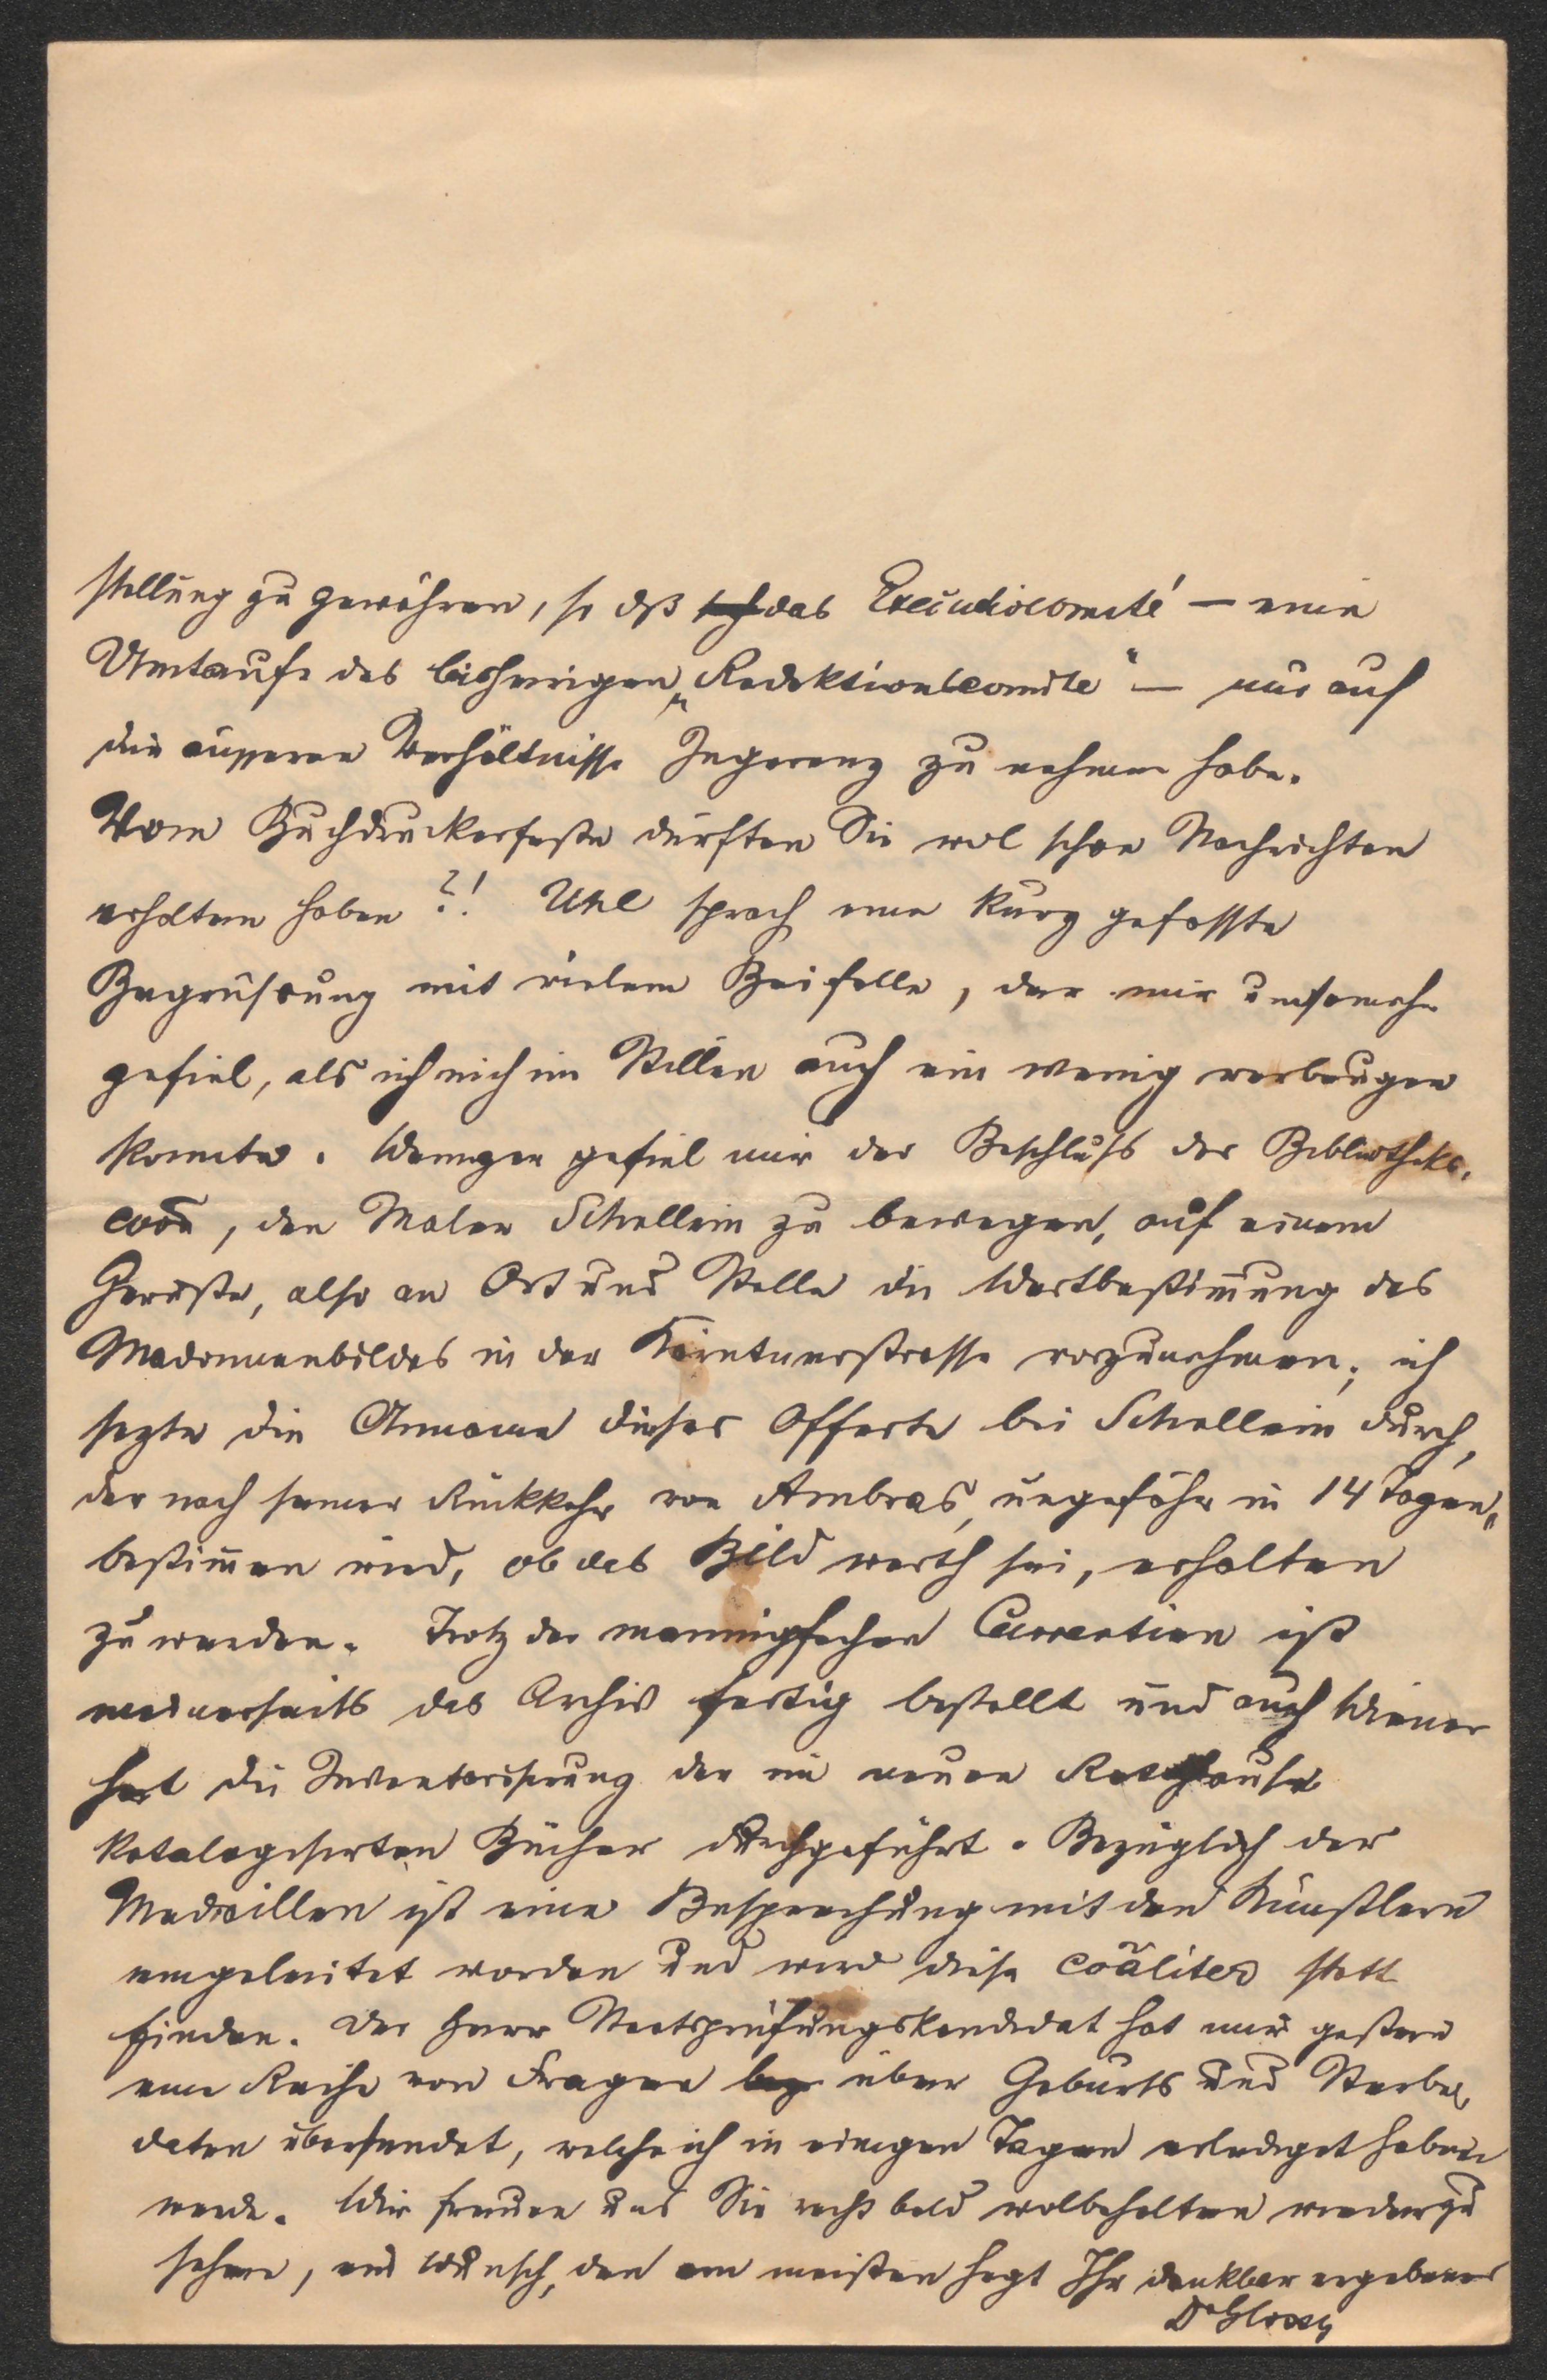 stellung zu gewähren, so dß sich das Executivcomité — eine
Umtaufe des bisherigen „Redaktionscomite" — nur auf
die äusseren Verhältnisse Ingerenz zu nehmen habe.
Vom Buchdruckerfeste dürften Sie wol schon Nachrichten
erhalten haben ?! Uhl sprach eine kurz gefasste
Begrüssung mit vielem Beifalle, der mir umsomehr
gefiel, als ich mich im Stillen auch ein wenig verbeugen
konnte. Weniger gefiel mir der Beschluss der Bibliotheks-
coõn, den Maler Schellein zu bewegen, auf einem
Gerüste, also an Ort und Stelle die Wertbestim̅ung des
Madonnenbildes in der Kärntnerstrasse vorzunehmen; ich
sezte die Anname dieser Offerte bei Schellein durch,
der nach seiner Rückkehr von Ambras, ungefähr in 14 Tagen,
bestim̅en wird, ob das Bild werth sei, erhalten
zu werden. Trotz der mannigfachen Currentien ist
meinerseits das Archiv fertig bestellt und auch Wiener
hat die Inventarisirung der im neuen Rathhause
katalogisirten Bücher durchgeführt. Bezüglich der
Medaillen ist eine Besprechung mit den Künstlern
eingeleitet worden und wird diese coãliter statt
finden. Der Herr Staatsprüfungskandidat hat mir gestern
eine Reihe von Fragen bez über Geburts und Sterbe-
daten übersendet, welche ich in einigen Tagen erlediget haben
werde. Wir freuen uns Sie recht bald wolbehalten wiederzu
sehen, ein Wunsch, den am meisten hegt Ihr dankbar ergebener
Dr Glossy